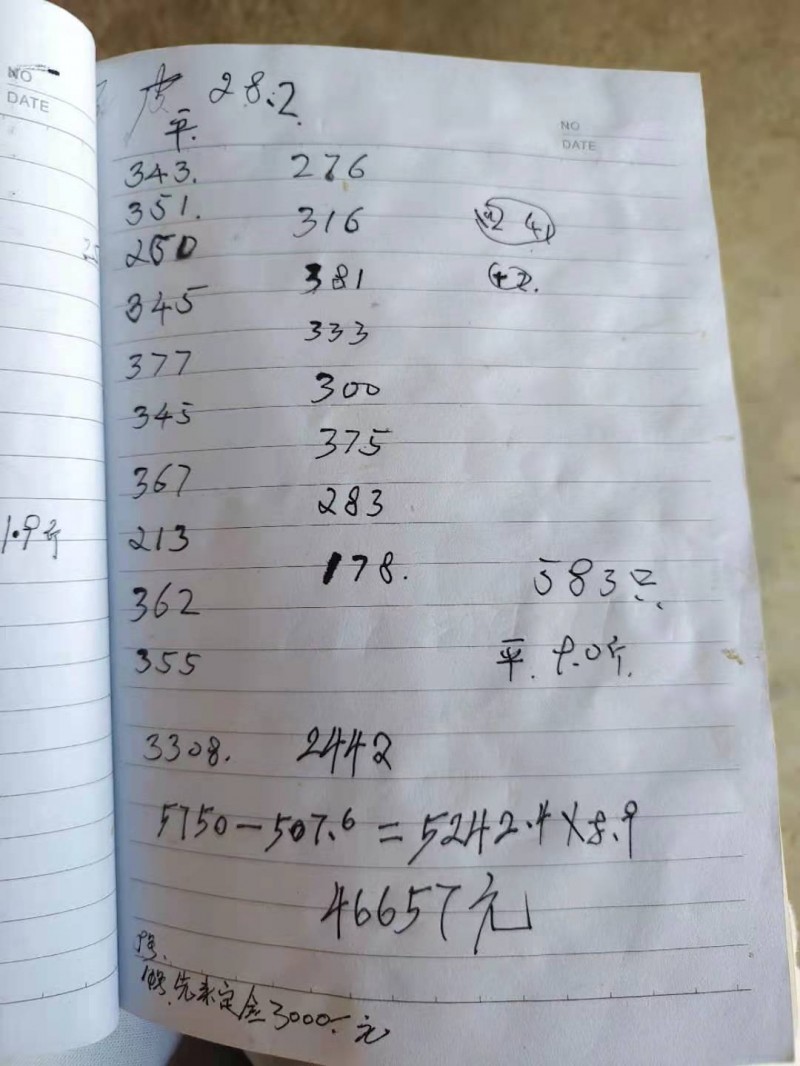 NO
DATE
NO
DATE
皮 28.2
平.
343. 276
351. 316
250 381
345 333
377 300
345 375
367 283
213 178.
362
355
583只.
平. 9.0斤.
3308. 2442
1.9斤
5750-507.6=5242.4×8.9
46657元
9号.
先来定金3000元